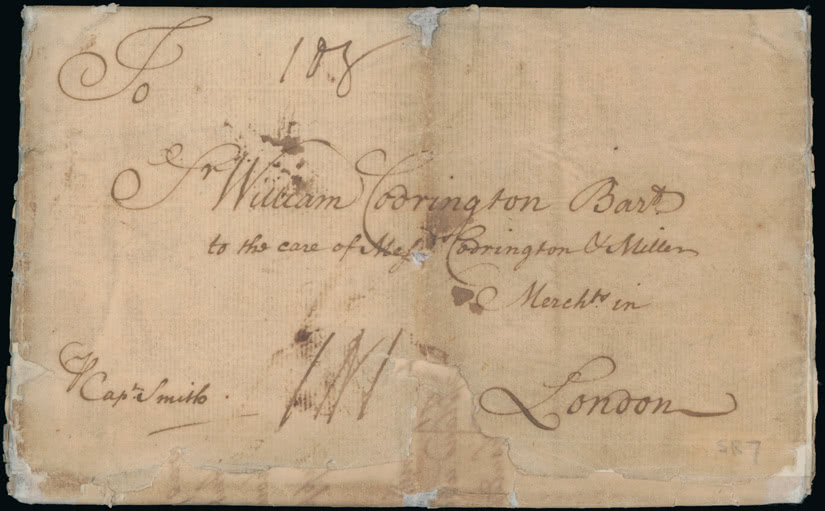 To
Sr William Codrington Bart
to the care of Messrs Codrington & Miller
Merchts in
℔ Capt Smith.
London
SR7